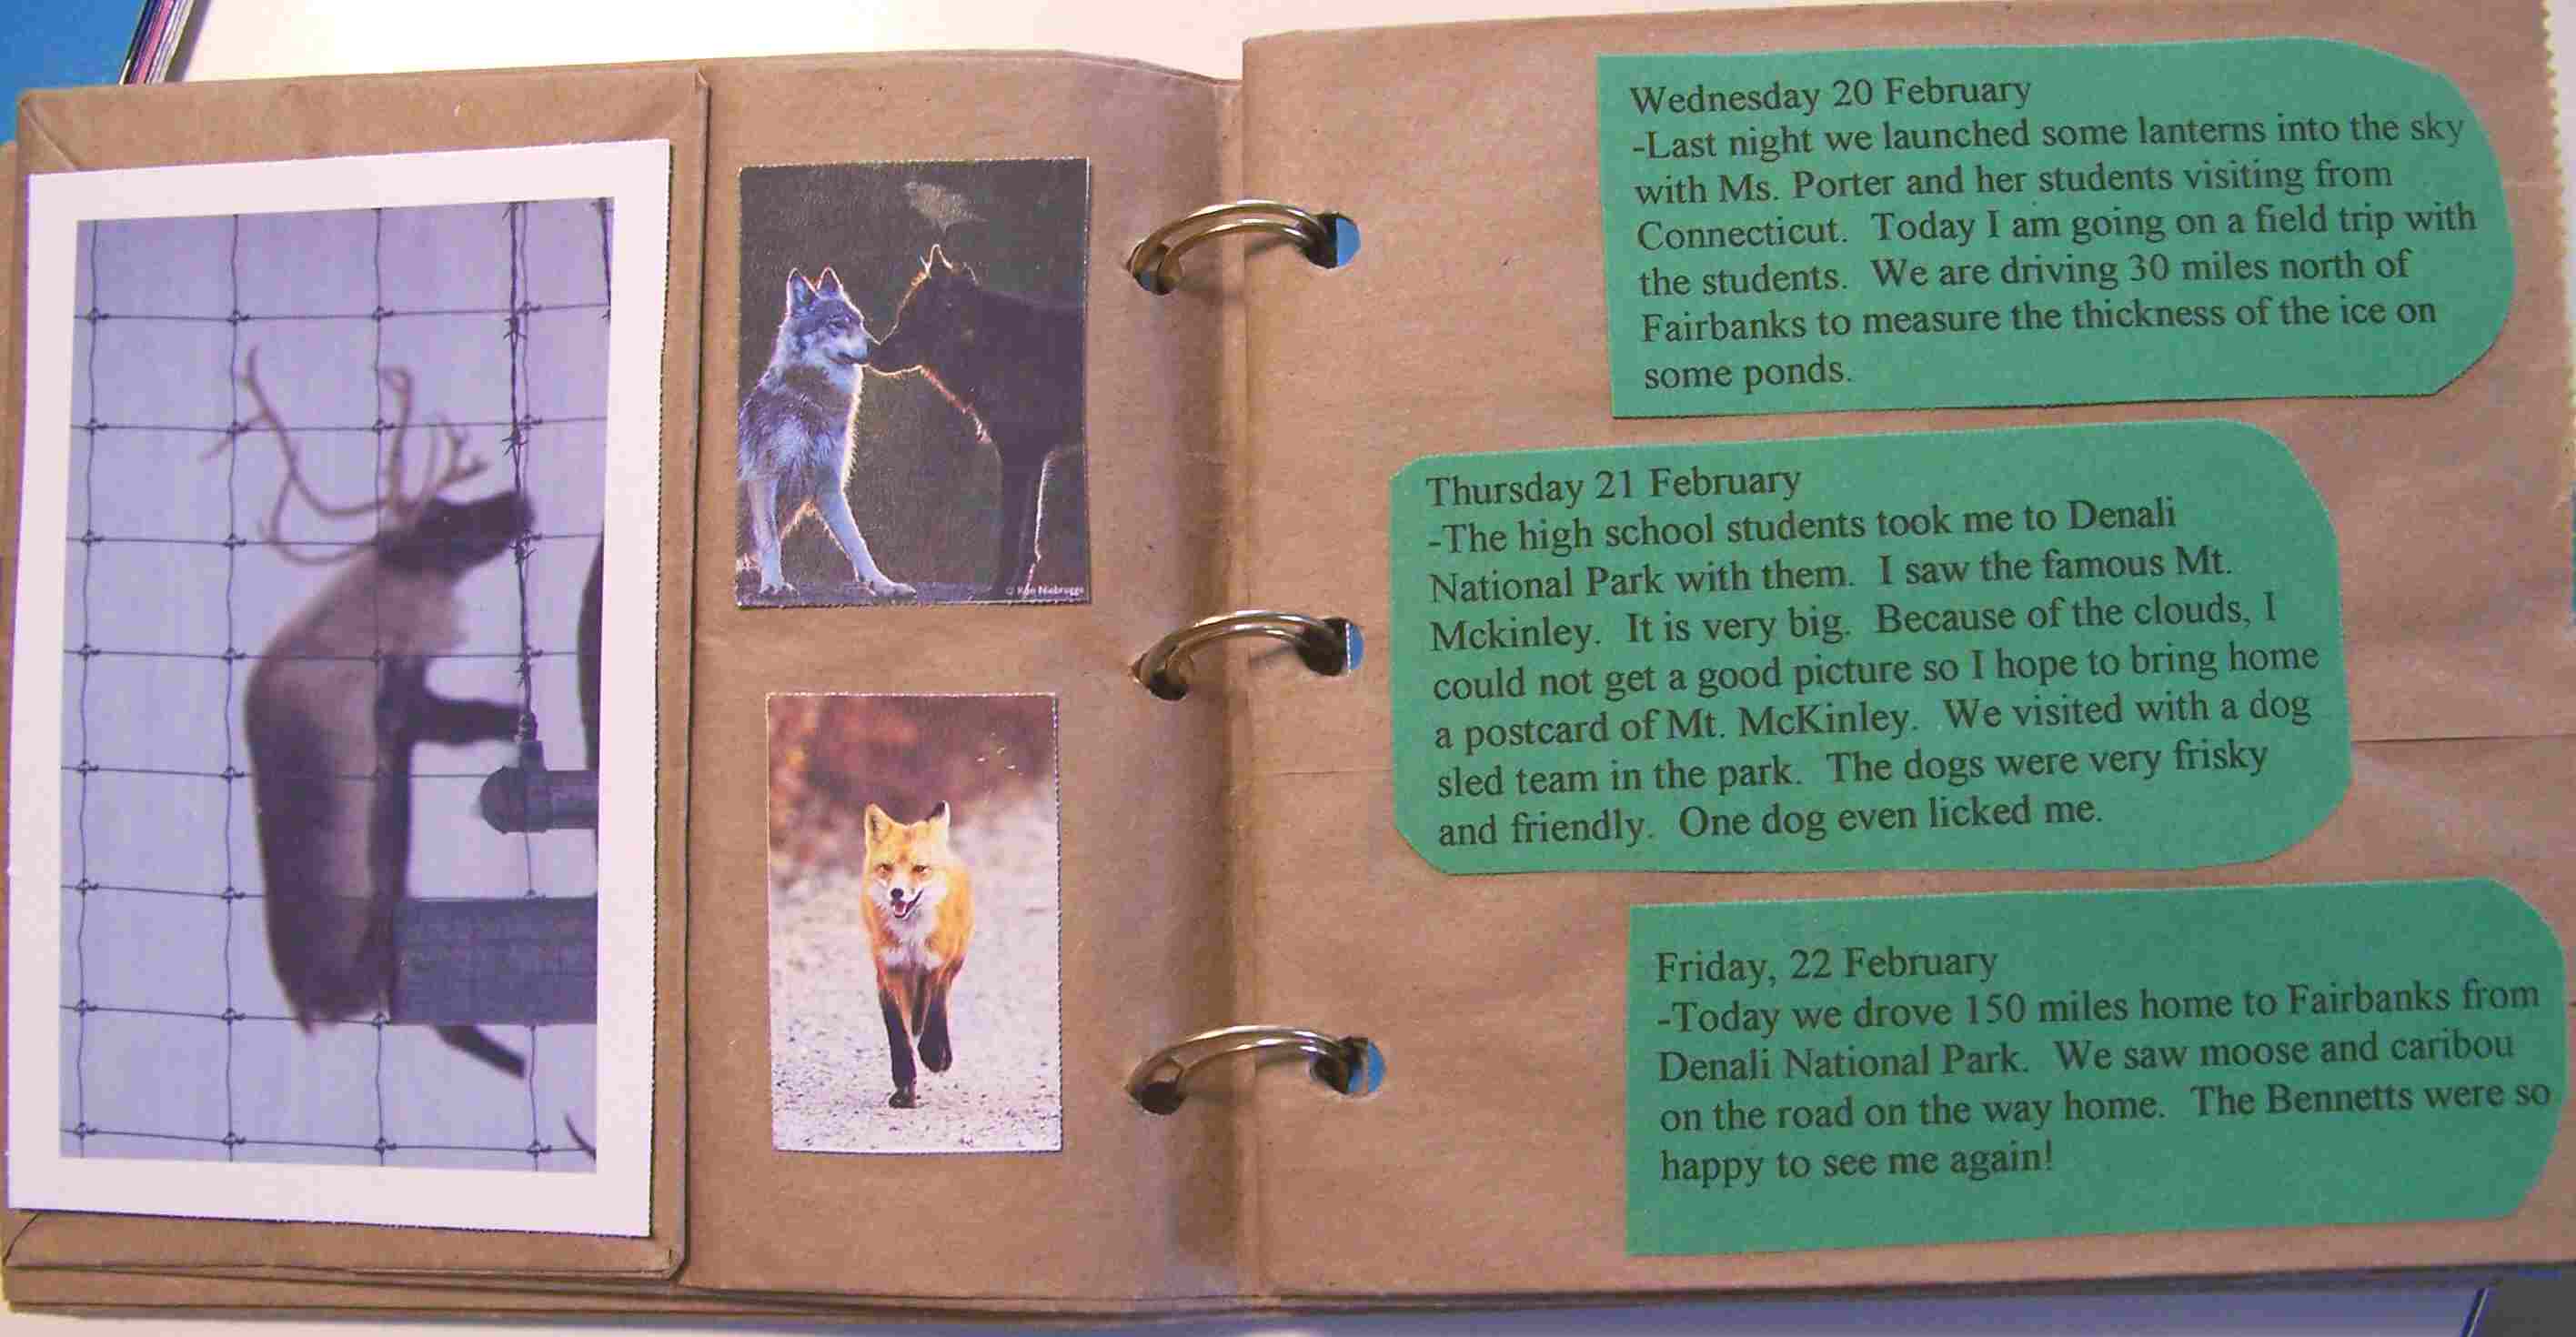 © Ron Niebrugge
Wednesday 20 February
-Last night we launched some lanterns into the sky
with Ms. Porter and her students visiting from
Connecticut.  Today I am going on a field trip with
the students.  We are driving 30 miles north of
Fairbanks to measure the thickness of the ice on
some ponds.
Thursday 21 February
-The high school students took me to Denali
National Park with them.  I saw the famous Mt.
Mckinley.  It is very big.  Because of the clouds, I
could not get a good picture so I hope to bring home
a postcard of Mt. McKinley.  We visited with a dog
sled team in the park.  The dogs were very frisky
and friendly.  One dog even licked me.
Friday, 22 February
-Today we drove 150 miles home to Fairbanks from
Denali National Park.  We saw moose and caribou
on the road on the way home.  The Bennetts were so
happy to see me again!